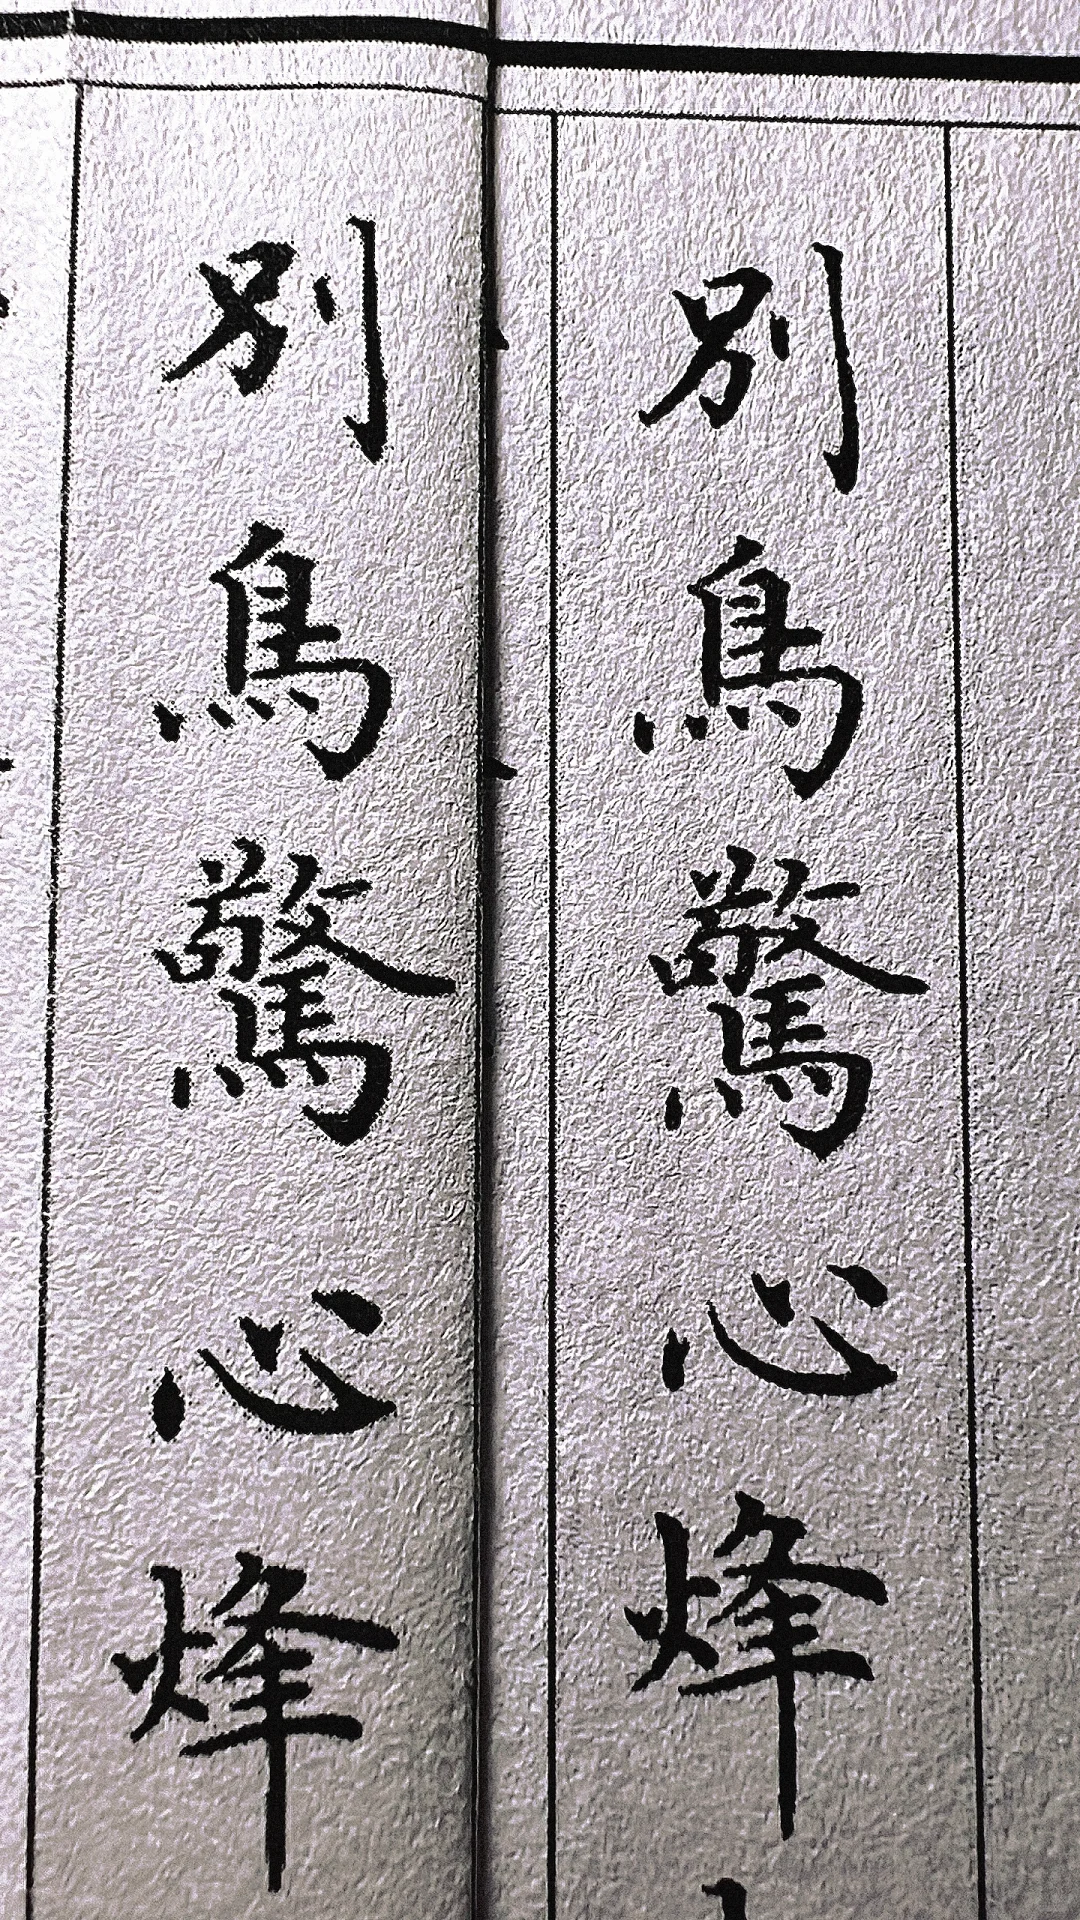 別鳥驚心烽
別鳥驚心烽